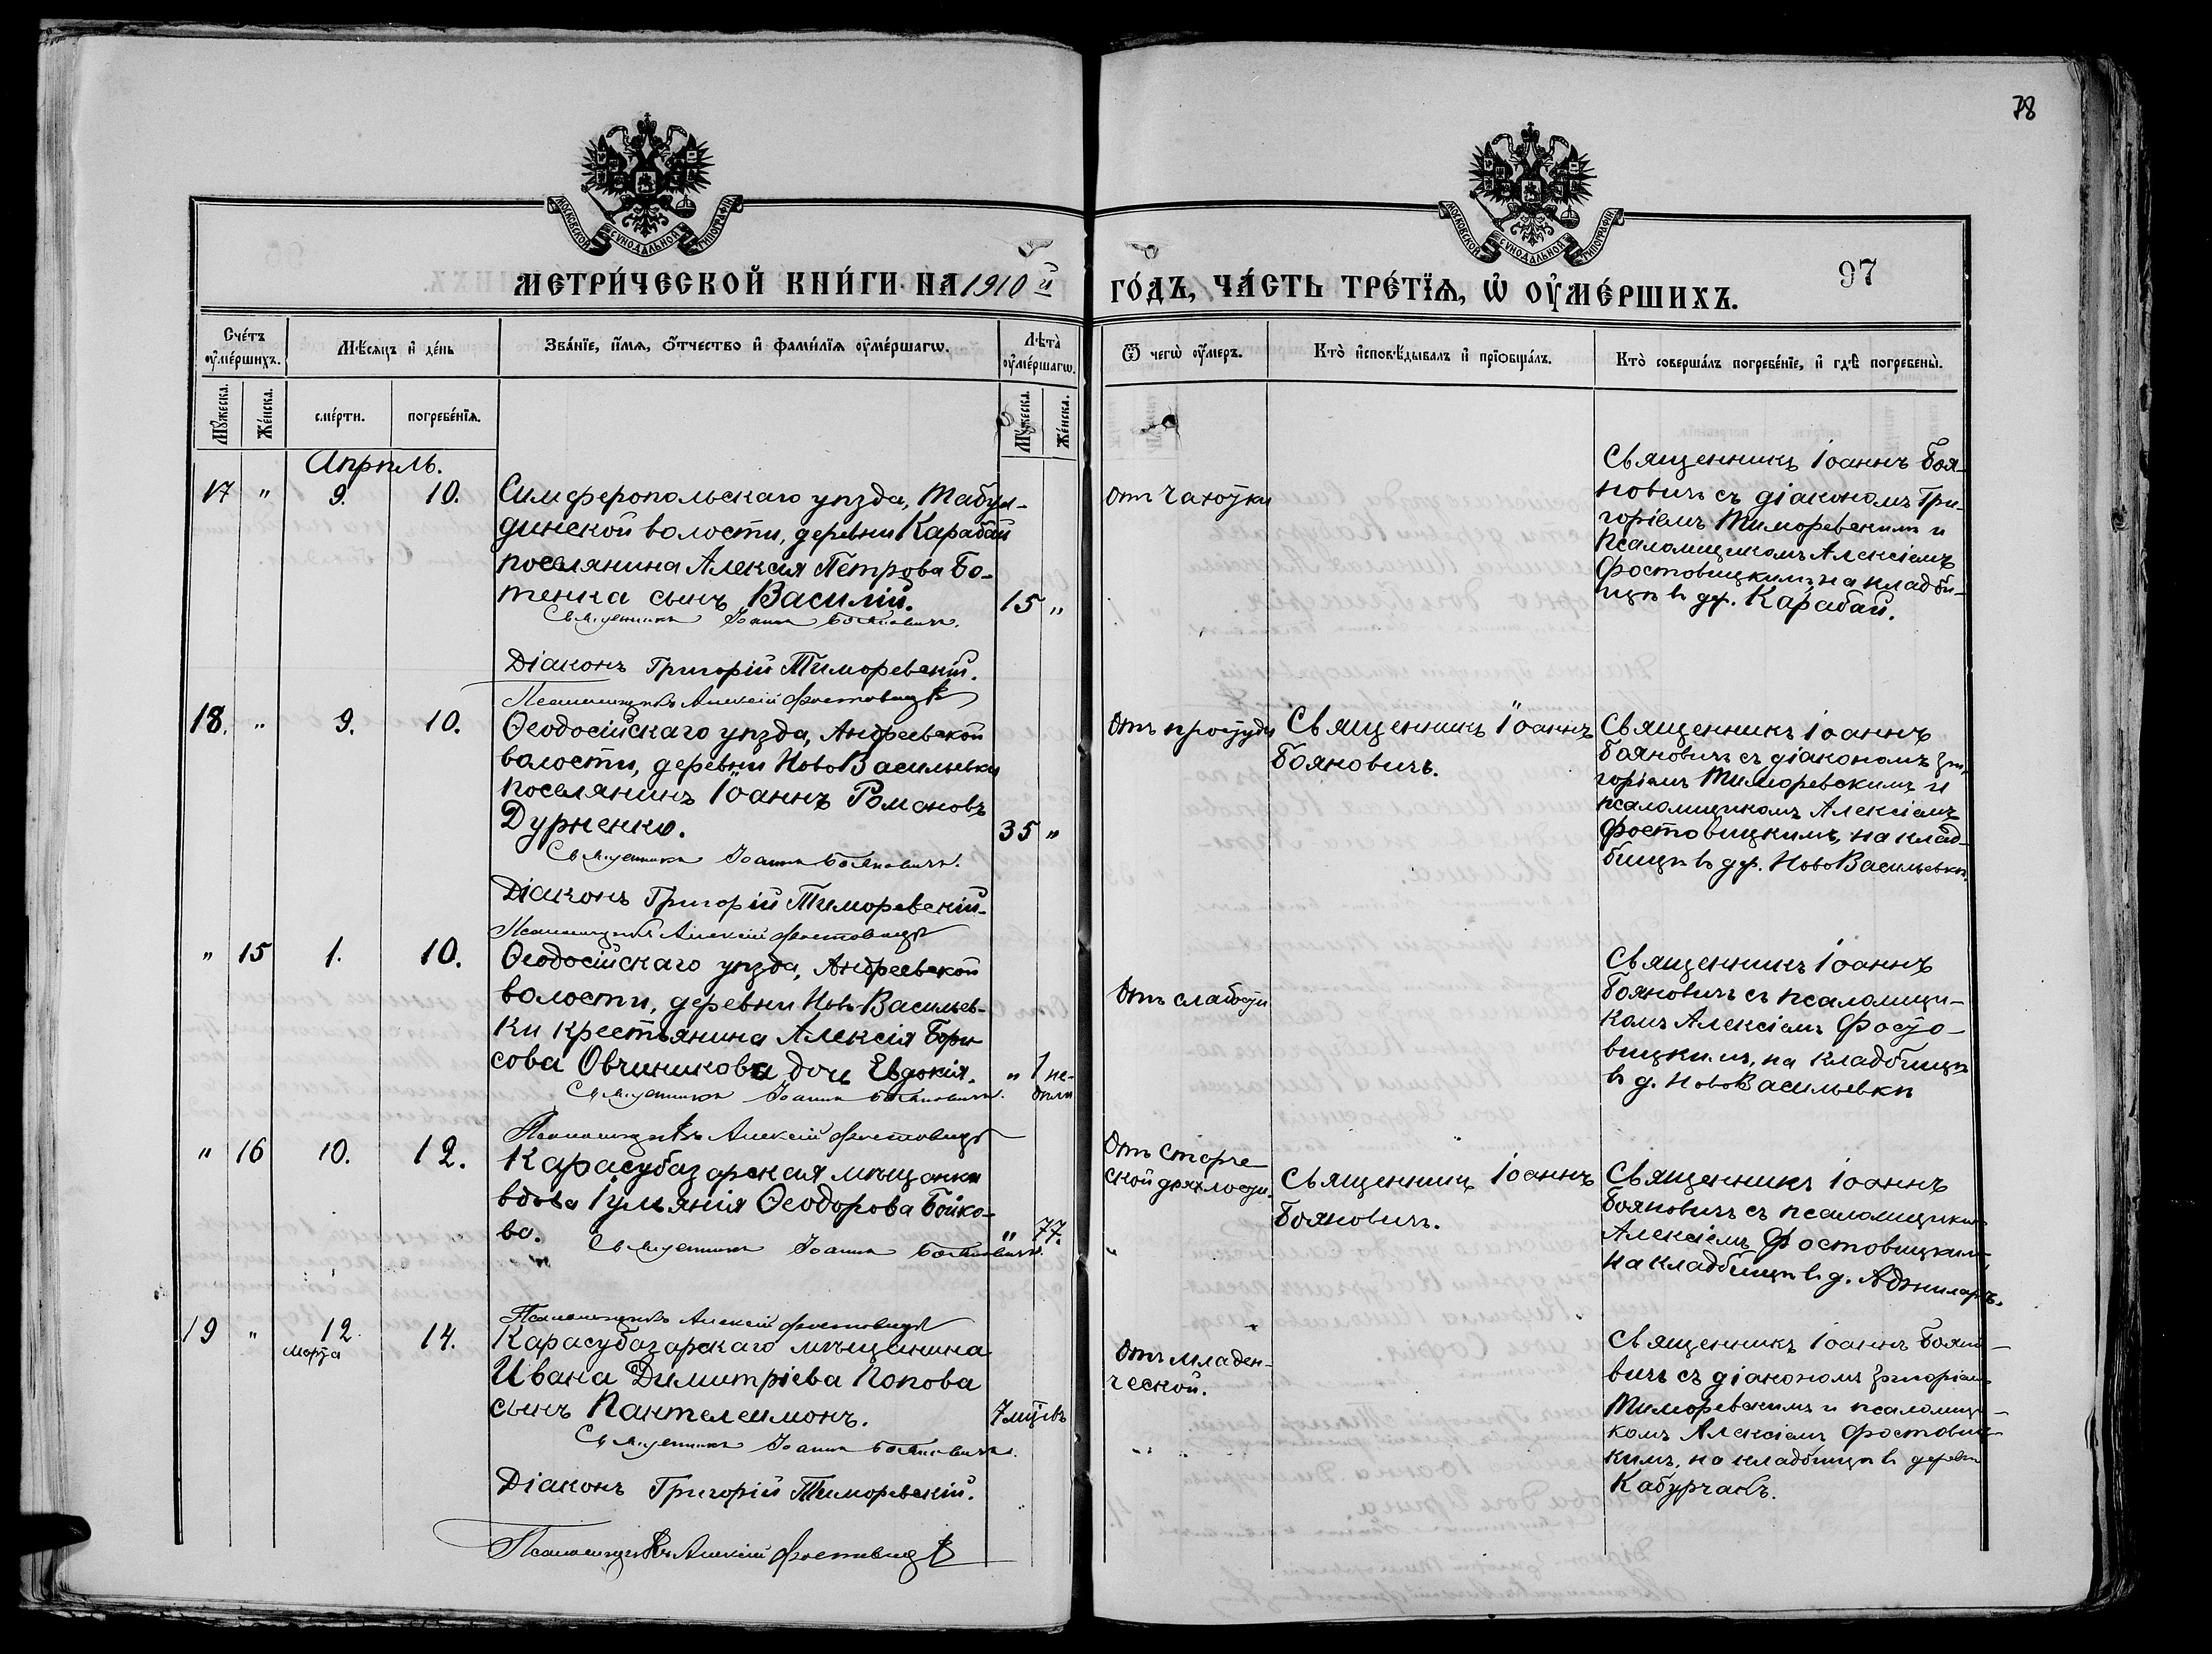 78
МОСКОВСКОЙ СѴНОДАЛЬНОЙ ТИПОГРАФІИ
МОСКОВСКОЙ СѴНОДАЛЬНОЙ ТИПОГРАФІИ
МЕТРИ́ЧЕСКОЙ КНИ́ГИ НА 1910 й
ГО́ДЪ, ЧА́СТЬ ТРЕ́ТЇѦ, Ѡ҆ ОУ҆МЕ́РШИХЪ.
97
Сче́тъ оу҆ме́ршихъ.
Мѣ́сѧцъ и҆ де́нь
Зва́нїе, и҆́мѧ, ѻ҆́тчество и҆ фами́лїѧ оу҆ме́ршагѡ.
Лѣ́та оу҆ме́ршагѡ.
Ѿ чегѡ̀ оу҆́меръ.
Кто̀ и҆сповѣ́дывалъ и҆ прїѡбща́лъ.
Кто̀ соверша́лъ погребе́нїе, и҆ гдѣ̀ погребены̀.
Мꙋ́жеска.
Же́нска.
сме́рти.
погребе́нїѧ.
Мꙋ́жеска.
Же́нска.
Апрѣль.
17 " 9. 10.
Симферопольскаго уѣзда, Табул-
динской волости, деревни Карабай
поселянина Алексія Петрова Бо-
тенка сынъ Василій.
15 "
Священникъ Іоаннъ Бояновичъ.
Діаконъ Григорій Тиморевскій.
Псаломщикъ Алексій Фостовицкій
отъ чахотки
Священникъ Іоаннъ Боя-
новичъ съ діакономъ Гри-
горіемъ Тиморевскимъ и
псаломщикомъ Алексіемъ
Фостовицкимъ на кладби-
щѣ въ др. Карабай.
18. " 9. 10.
Ѳеодосійскаго уѣзда, Андреевской
волости, деревни НовоВасильевки
поселянинъ Іоаннъ Романовъ
Дурненко.
35 "
Священникъ Іоаннъ Бояновичъ.
Діаконъ Григорій Тиморевскій.
Псаломщикъ Алексій Фостовицкій
Отъ простуды
Священникъ Іоаннъ
Бояновичъ.
Священникъ Іоаннъ
Бояновичъ съ діакономъ Гри-
горіемъ Тиморевскимъ и
псаломщикомъ Алексіемъ
Фостовицкимъ, на клад-
бищѣ въ др. НовоВасильевкѣ.
" 15 1. 10.
Ѳеодосійскаго уѣзда, Андреевской
волости, деревни НовоВасильев-
ки крестьянина Алексія Бори
сова Овчиникова дочь Евдокія.
" 1 не-
дѣли
Священникъ Іоаннъ Бояновичъ.
Псаломщикъ Алексій Фостовицкій
Отъ слабости
Священникъ Іоаннъ
Бояновичъ съ псаломщи-
комъ Алексіемъ Фосто-
вицкимъ, на кладбищѣ
въ д. НовоВасильевкѣ
" 16 10. 12.
Карасубазарская мѣщанка
вдова Іуліянія Ѳеодорова Бойко-
ва.
" 77.
Священникъ Іоаннъ Бояновичъ.
Псаломщикъ Алексій Фостовицкій
Отъ старче-
ской дряхлости.
Священникъ Іоаннъ
Бояновичъ.
Священникъ Іоаннъ
Бояновичъ съ псаломщикомъ
Алексіемъ Фостовицкимъ,
на кладбищѣ въ д.
19 " 12 14.
Марта
Карасубазарскаго мѣщанина
Ивана Димитріева Попова
сынъ Пантелеимонъ.
7 мѣсяцевъ
Священникъ Іоаннъ Бояновичъ.
Діаконъ Григорій Тиморевскій.
Псаломщикъ Алексій Фостовицкій
Отъ младен-
ческой.
Священникъ Іоаннъ Бояно-
вичъ съ діакономъ Григоріемъ
Тиморевскимъ и псаломщи-
комъ Алексіемъ Фостовиц-
кимъ, на кладбищѣ въ деревнѣ
Кабурчакъ.